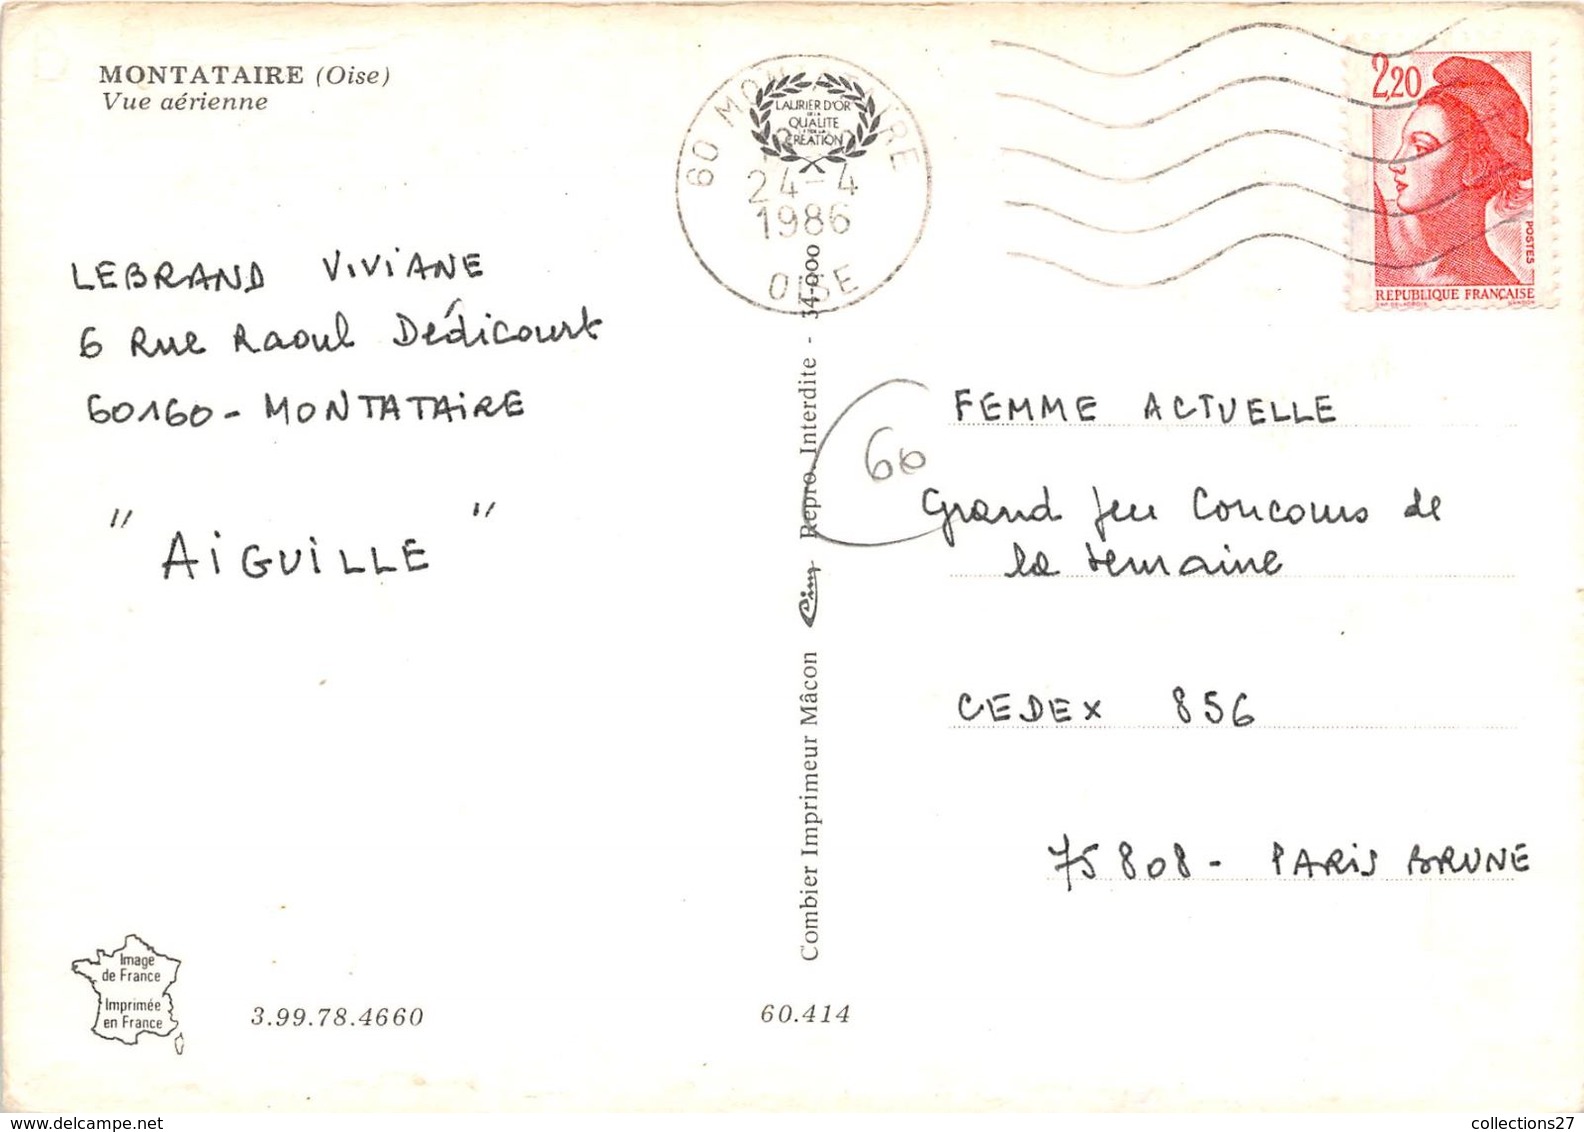 MONTATAIRE (Oise)
Vue aérienne
60 MONTATAIRE
24-4
1986
OISE
LAURIER D'OR
DE LA
QUALITE
ET DE LA
CREATION
2,20
POSTES
REPUBLIQUE FRANÇAISE
LEBRAND VIVIANE
6 Rue Raoul Dédicourt
60160 - MONTATAIRE
" AIGUILLE "
Combier Imprimeur Mâcon Cim Repro. Interdite - 34-000
60
FEMME ACTUELLE
Grand Jeu Concours de
la semaine
CEDEX 856
75808 - PARIS BRUNE
Image
de France
Imprimée
en France
3.99.78.4660
60.414
collections27